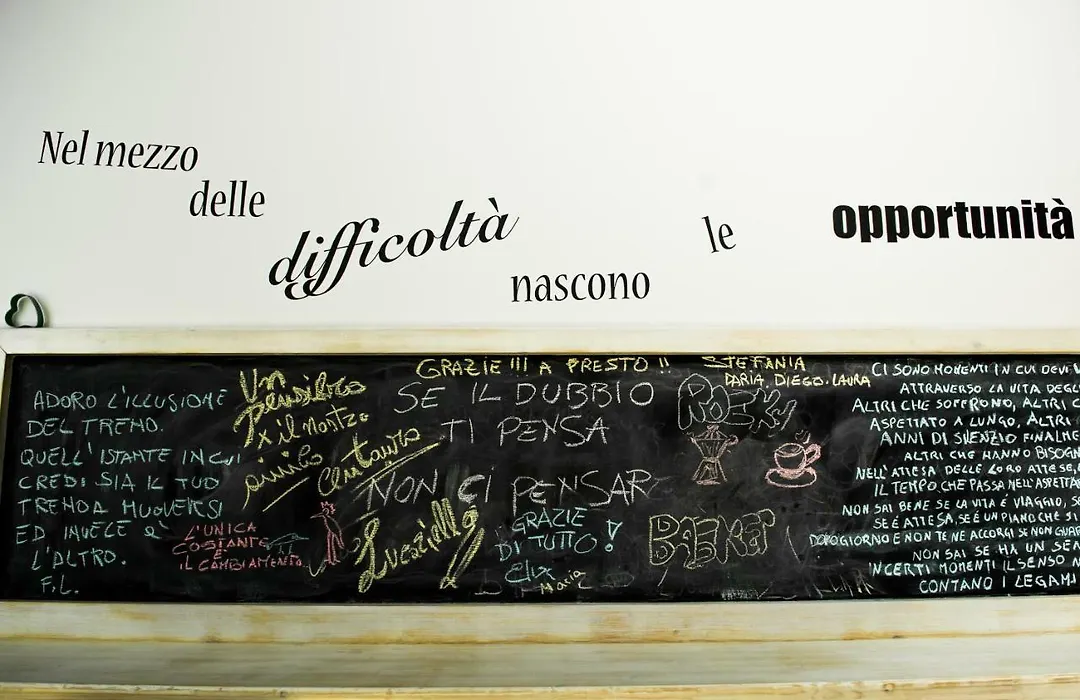 Nel mezzo
delle
difficoltà
nascono
le
opportunità
ADORO L'ILLUSIONE
DEL TRENO.
QUELL'ISTANTE IN CUI
CREDI SIA IL TUO
TRENO A MUOVERSI
ED INVECE È
L'ALTRO.
F.L.
L'UNICA
COSTANTE
È
IL CAMBIAMENTO
Un
pensiero
x il nostro
GRAZIE !!! A PRESTO !!
STEFANIA
DARIA, DIEGO, LAURA
SE IL DUBBIO
TI PENSA
NON CI PENSAR
ROCKY
GRAZIE
DI TUTTO!
Elix
Maria
CI SONO MOMENTI IN CUI DEVI
ATTRAVERSO LA VITA DEGL
ALTRI CHE SOFFRONO, ALTRI C
ASPETTATO A LUNGO, ALTRI
ANNI DI SILENZIO FINALME
ALTRI CHE HANNO BISOGN
NELL'ATTESA DELLE LORO ATTESE,
IL TEMPO CHE PASSA NELL'ASPETTA
NON SAI BENE SE LA VITA È VIAGGIO, SE
SE È ATTESA, SE È UN PIANO CHE SI
DOPO GIORNO E NON TE NE ACCORGI SE NON GUAR
NON SAI SE HA UN SEN
IN CERTI MOMENTI IL SENSO N
CONTANO I LEGAMI